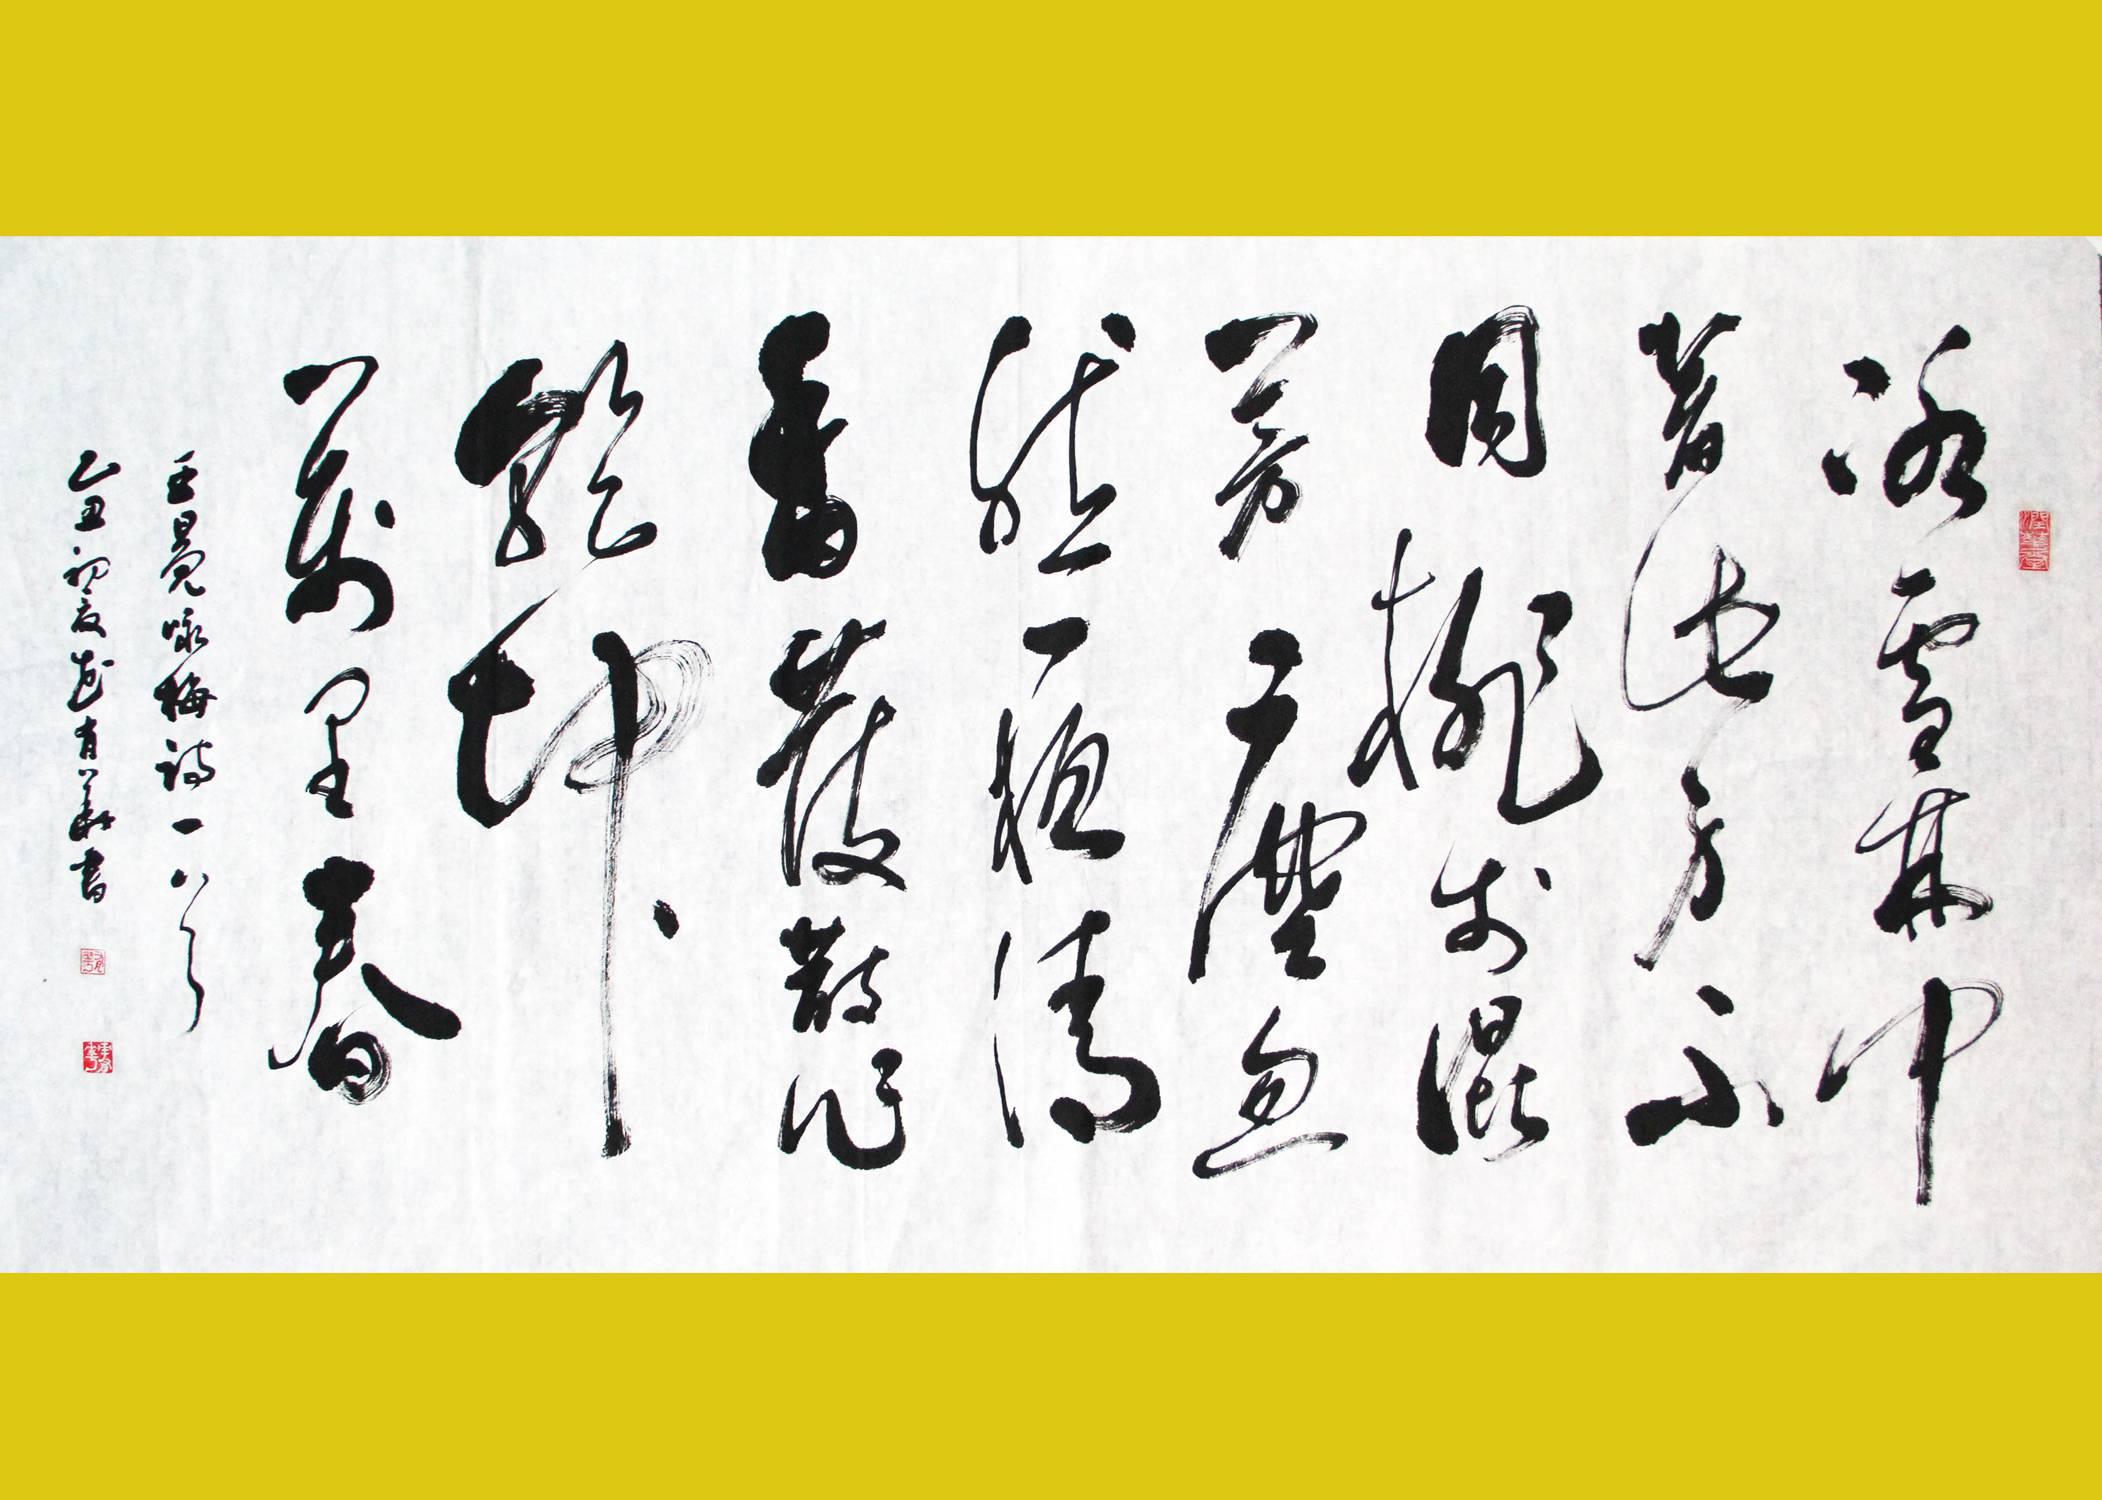 冰雪林中
著此身不
同桃李混
芳塵忽
然一夜清
香發散作
乾坤
萬里春
王冕咏梅詩一首
丑初夏書